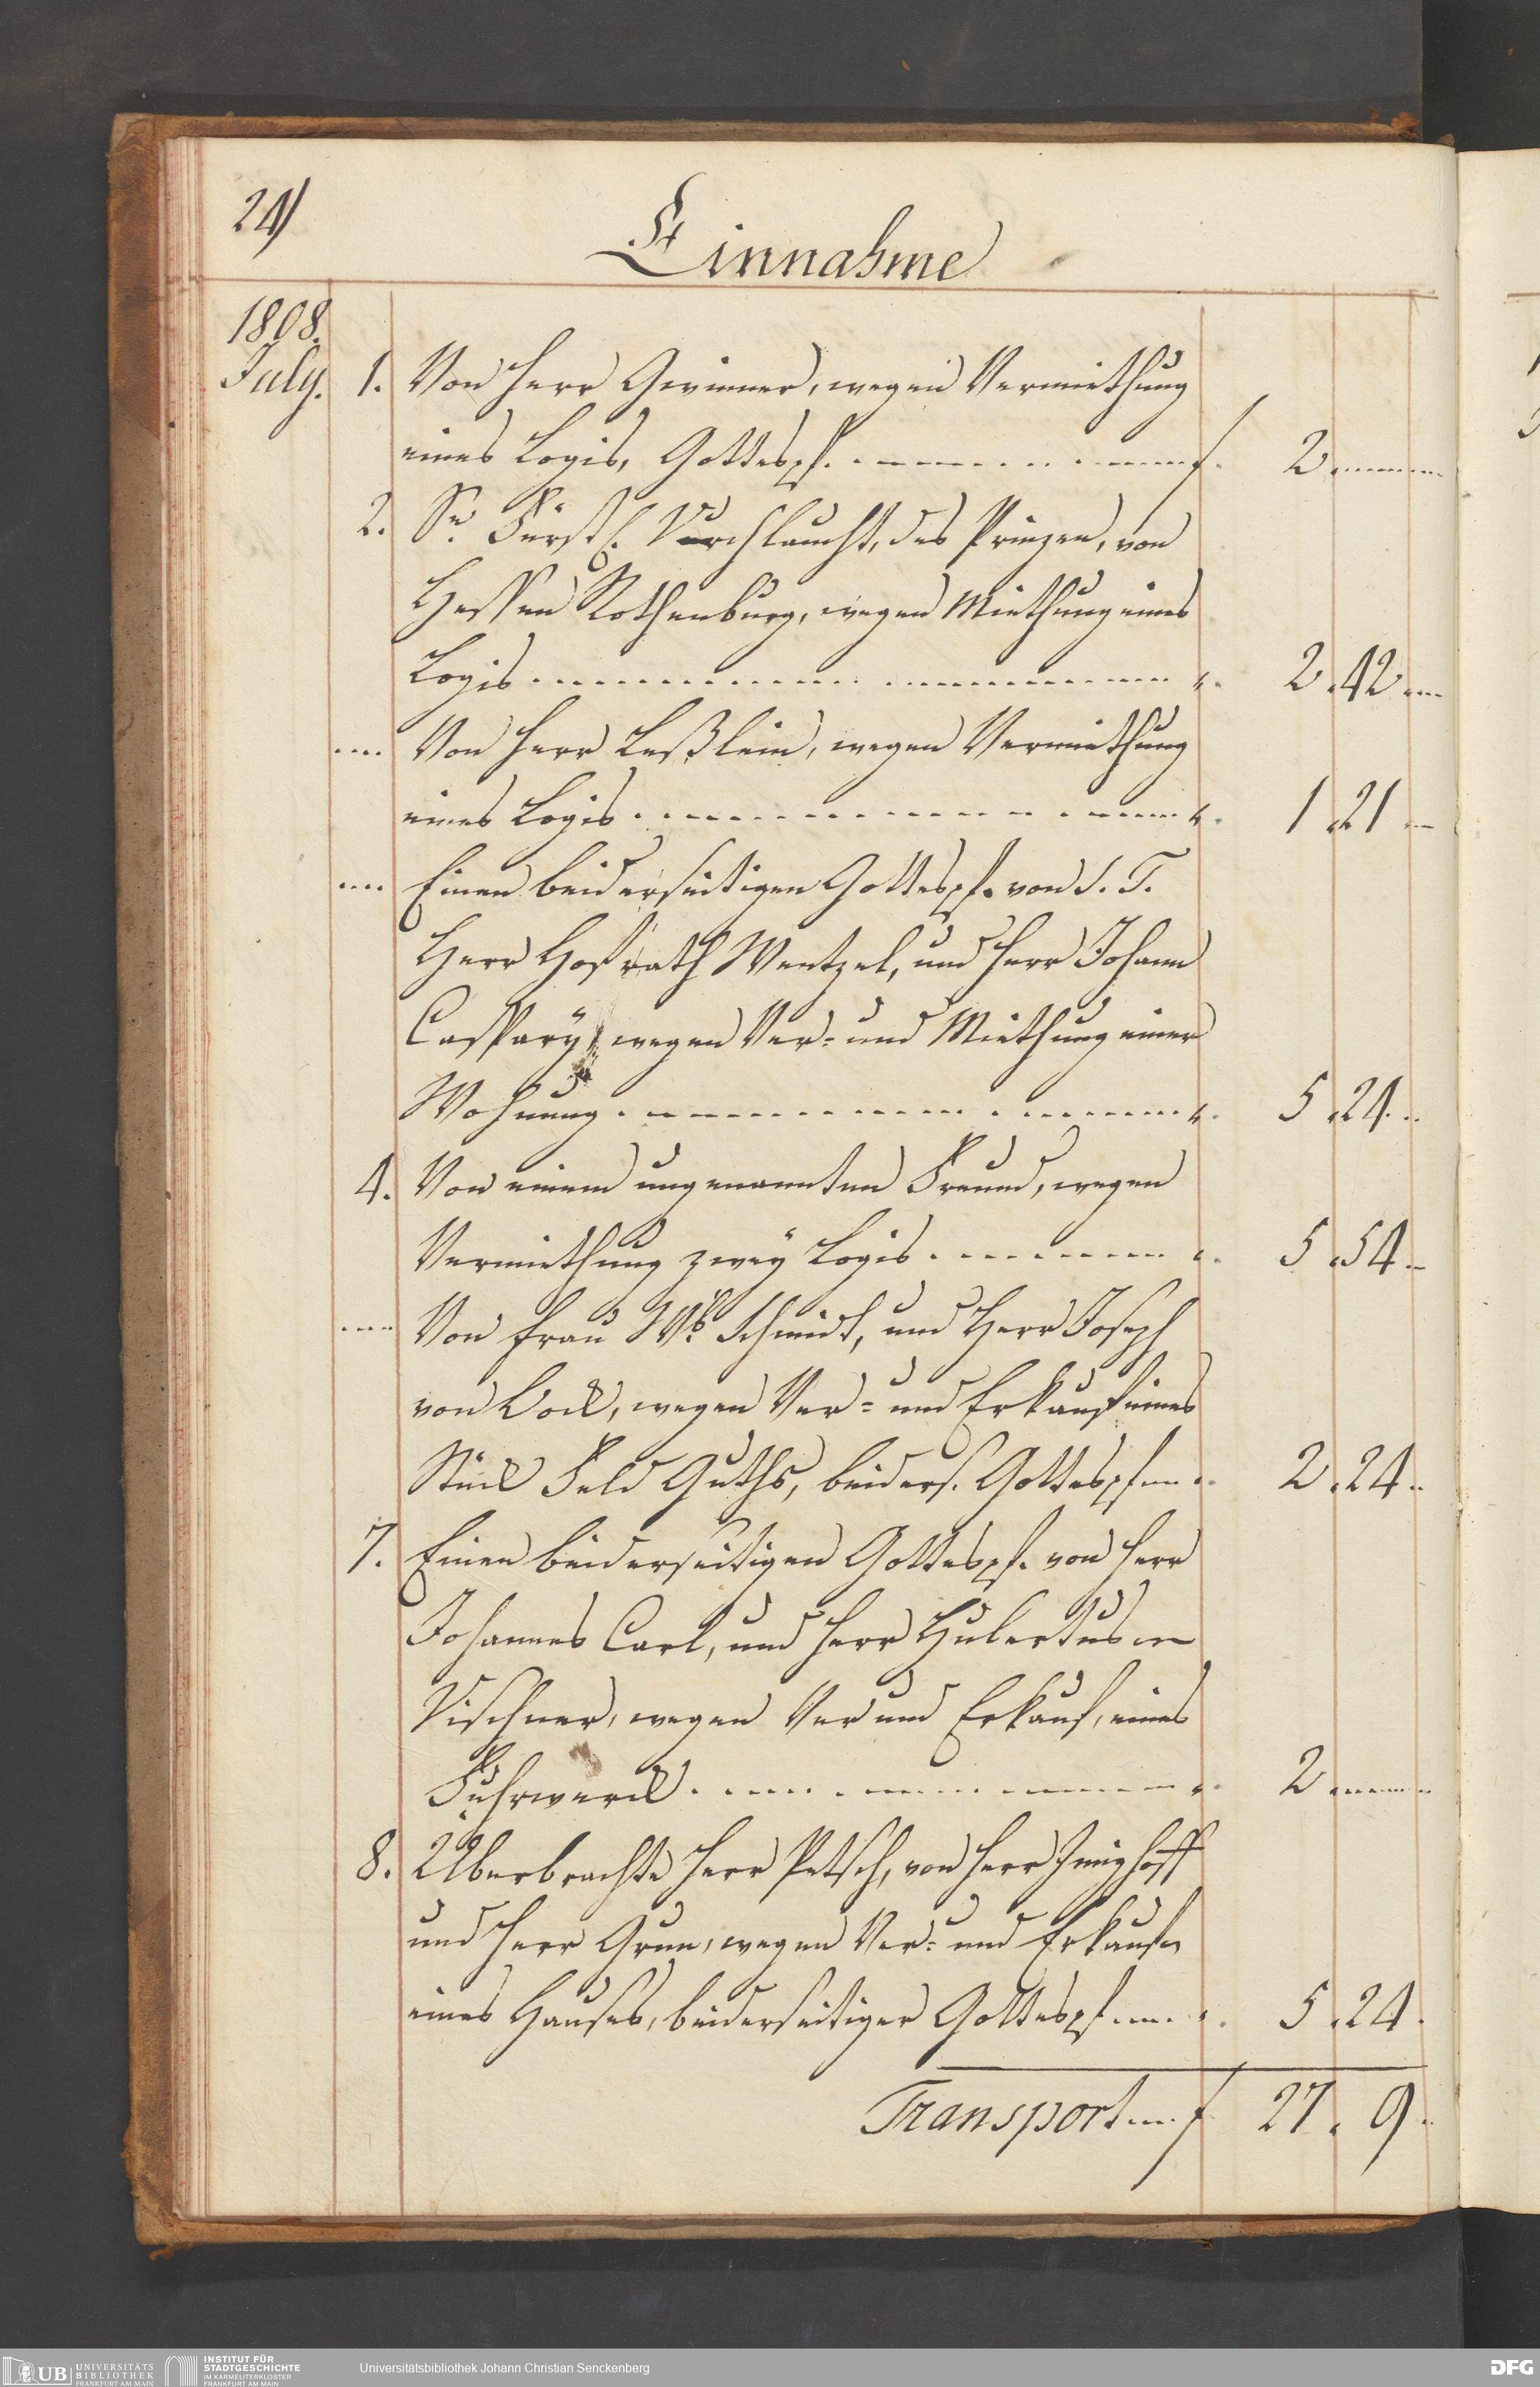 24)
Einnahme
1808.
July. 1. Von Herr Gwinner, wegen Vermiethung
eines Logis, Gottespf. f. 2
2. Sr. Fürstl. Durchlaucht, des Prinzen, von
Hessen Rothenburg, wegen Miethung eines
Logis 2. 42
Von Herr Leßlein, wegen Vermiethung
eines Logis 1. 21
Einen beiderseitigen Gottespf. von S. T.
Herr Hofrath Wentzel, und Herr Johann
Caspary, wegen Ver- und Miethung einer
Wohnung 5. 24
4. Von einem ungenannten Freund, wegen
Vermiethung zwey Logis 5. 54
Von Frau Wb. Schmidt, und Herr Joseph
von Lock, wegen Ver- und Erkauf eines
Stück Feld Guths, beiders. Gottespf. 2. 24
7. Einen beiderseitigen Gottespf. von Herr
Johannes Carl, und Herr Hubertus
Vischner, wegen Ver und Erkauf, eines
Fuhrwerck 2
8. Überbrachte Herr Petsch, von Herr
und Herr Grun, wegen Ver- und Erkauf
eines Hauses, beiderseitiger Gottespf. 5. 24.
Transport f 27. 9.
UB UNIVERSITÄTS BIBLIOTHEK FRANKFURT AM MAIN
INSTITUT FÜR STADTGESCHICHTE IM KARMELITERKLOSTER FRANKFURT AM MAIN
Universitätsbibliothek Johann Christian Senckenberg
DFG